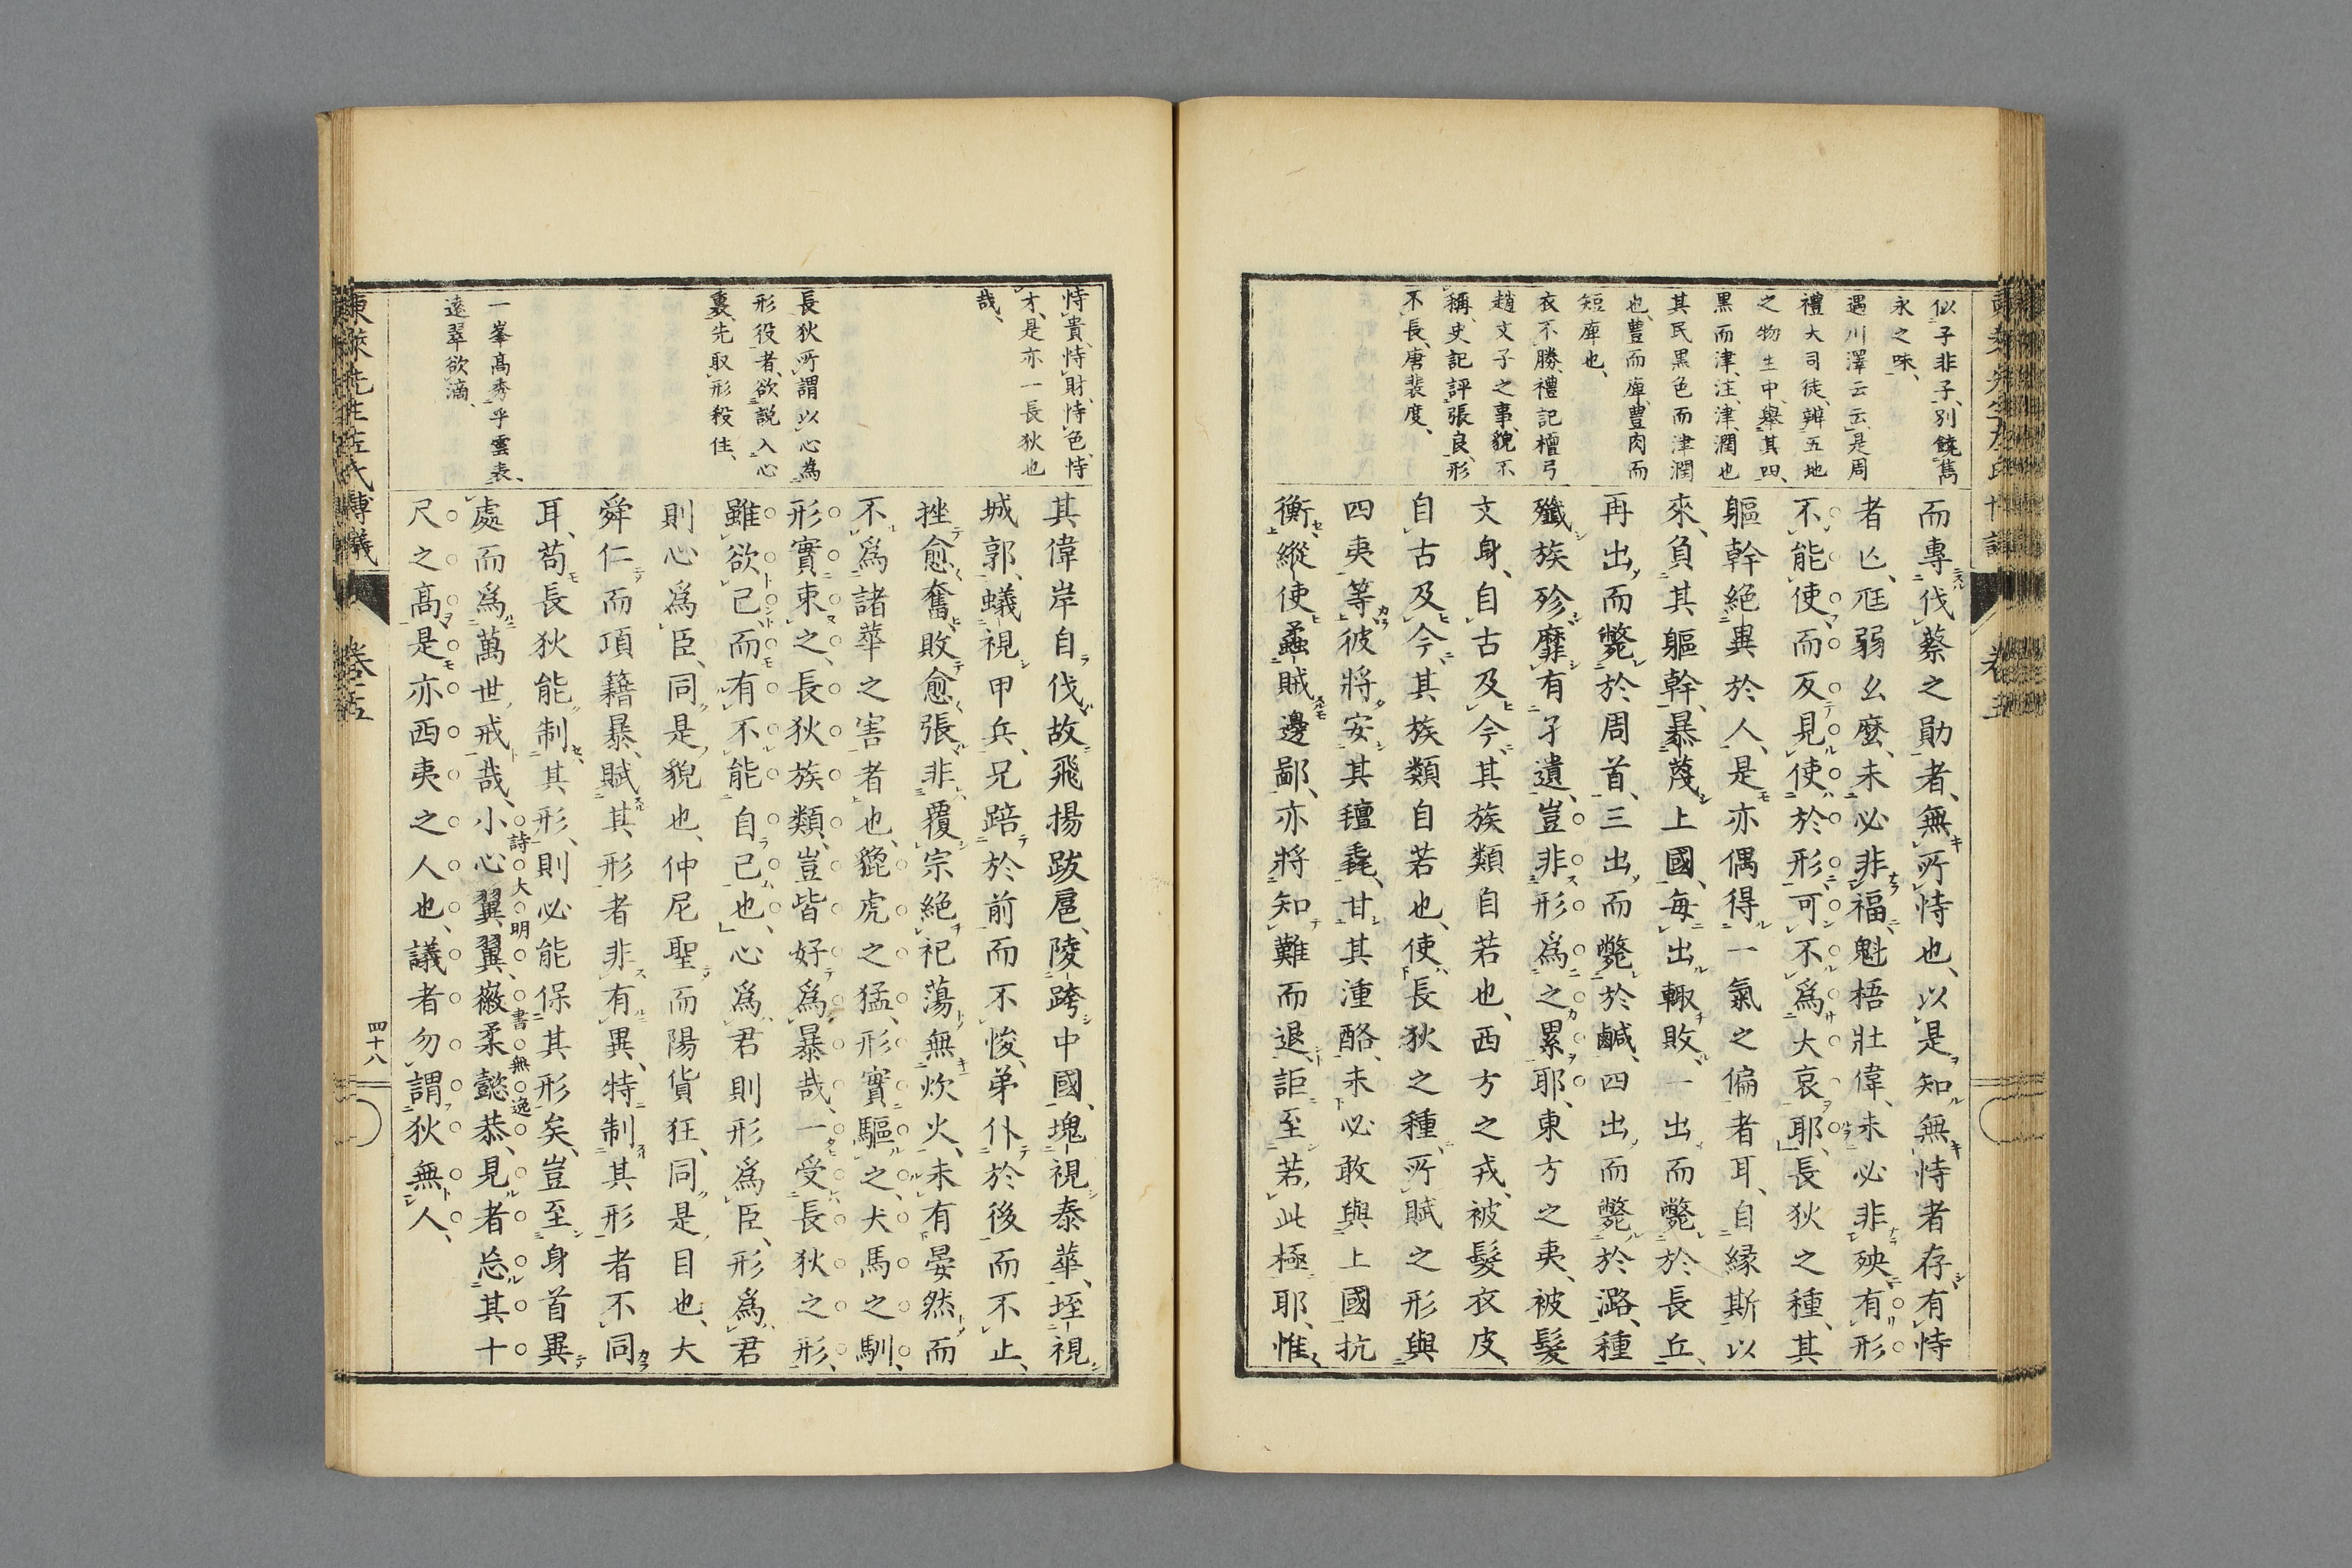 似子非子、別饒雋
永之味、
遇川澤云云、是周
禮大司徒、辨五地
之物生中、擧其四、
黒而津、注、津、潤也
其民黒色而津潤
也、豊而庳、豊肉而
短庳也、
衣不勝、禮記檀弓
趙文子之事、貌不
稱、史記評張良、形
不長、唐裴度、
而專伐蔡之勛者、無所恃也、以是知無恃者存、有恃
者亡、尫弱幺麼、未必非福、魁梧壯偉、未必非殃、有形
不能使、而反見使於形、可不爲大哀耶、長狄之種、其
軀幹絕異於人、是亦偶得一氣之偏者耳、自緣斯以
來、負其軀幹、暴蔑上國、毎出輙敗、一出而斃於長丘、
再出而斃於周首、三出而斃於鹹、四出而斃於潞、種
殲族殄、靡有孑遺、豈非形爲之累耶、東方之夷、被髮
文身、自古及今、其族類自若也、西方之戎、被髮衣皮、
自古及今、其族類自若也、使長狄之種、所賦之形與
四夷等、彼將安其氊毳、甘其湩酪、未必敢與上國抗
衡、縱使蟊賊邊鄙、亦將知難而退、詎至若此極耶、惟
恃貴、恃財、恃色、恃
才、是亦一長狄也
哉、
長狄所謂以心為
形役者、欲説入心
裏、先取形殺住、
一峯髙秀乎雲表、
遠翠欲滴、
其偉岸自伐、故飛揚跋扈、陵跨中國、塊視泰華、垤視
城郭、蟻視甲兵、兄踣於前、而不悛、弟仆於後、而不止、
挫愈奮、敗愈張、非覆宗絕祀、蕩無炊火、未有晏然而
不爲諸華之害者也、豼虎之猛、形實驅之、犬馬之馴、
形實束之、長狄族類、豈皆好爲暴哉、一受長狄之形、
雖欲已而有不能自已也、心爲君則形爲臣、形爲君
則心爲臣、同是貌也、仲尼聖而陽貨狂、同是目也、大
舜仁而項籍暴、賦其形者非有異、特制其形者不同
耳、苟長狄能制其形、則必能保其形矣、豈至身首異
處、而爲萬世戒哉、小心翼翼、徽柔懿恭、見者忘其十
詩大明
書無逸
尺之髙、是亦西夷之人也、議者勿謂狄無人、
東萊先生左氏博議
卷五
四十八